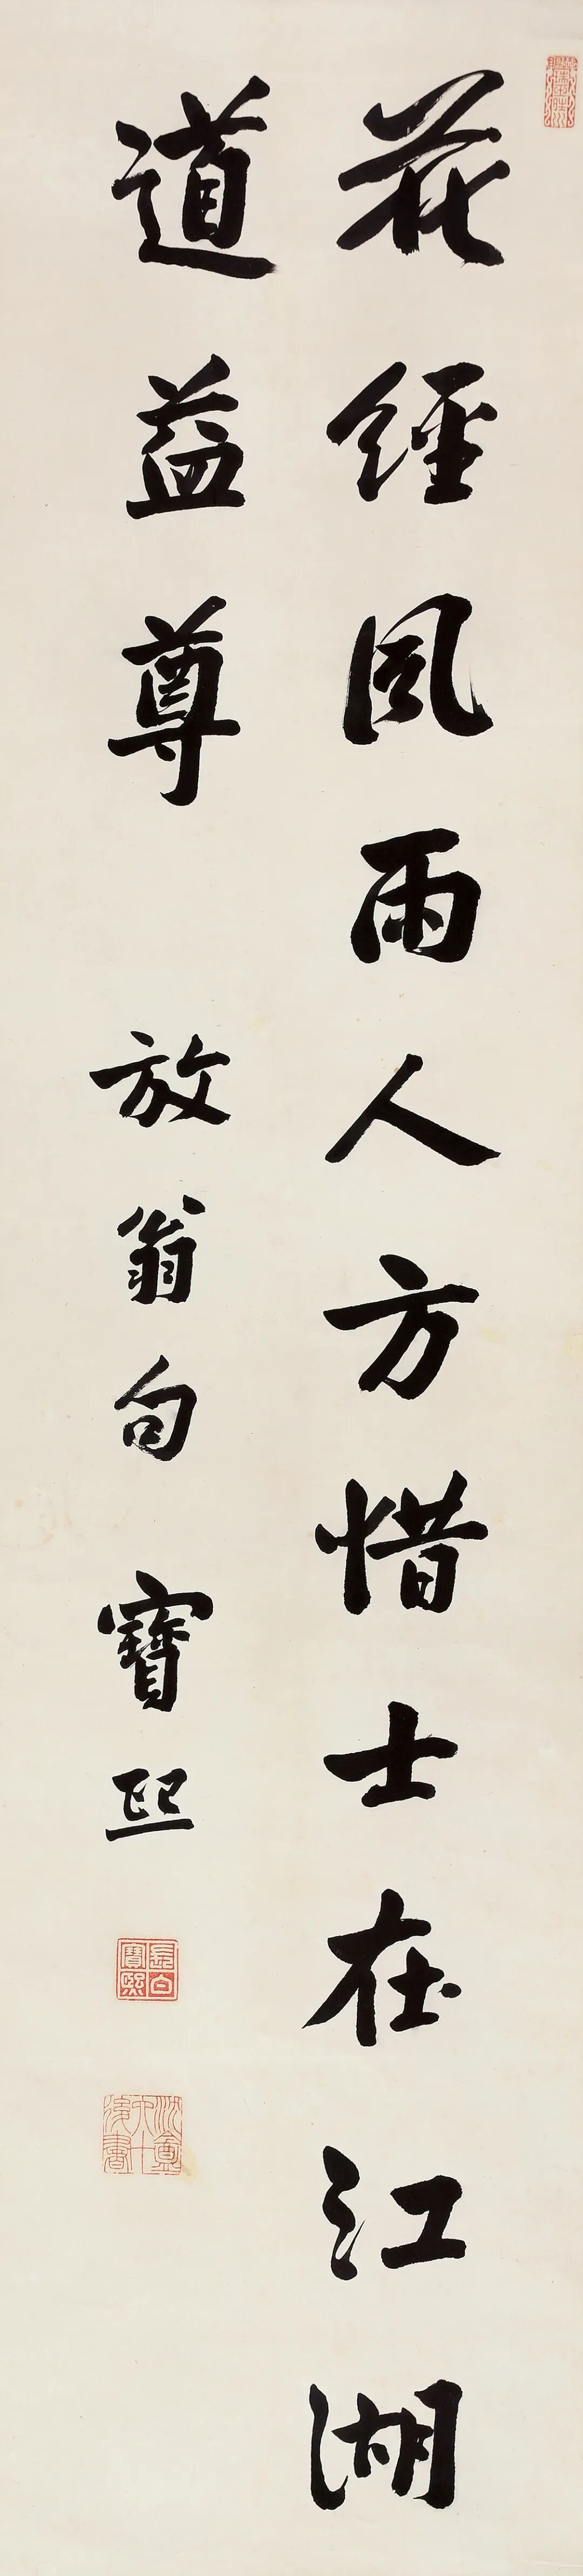 花經風雨人方惜士在江湖
道益尊 放翁句 寶熙
長白寶熙